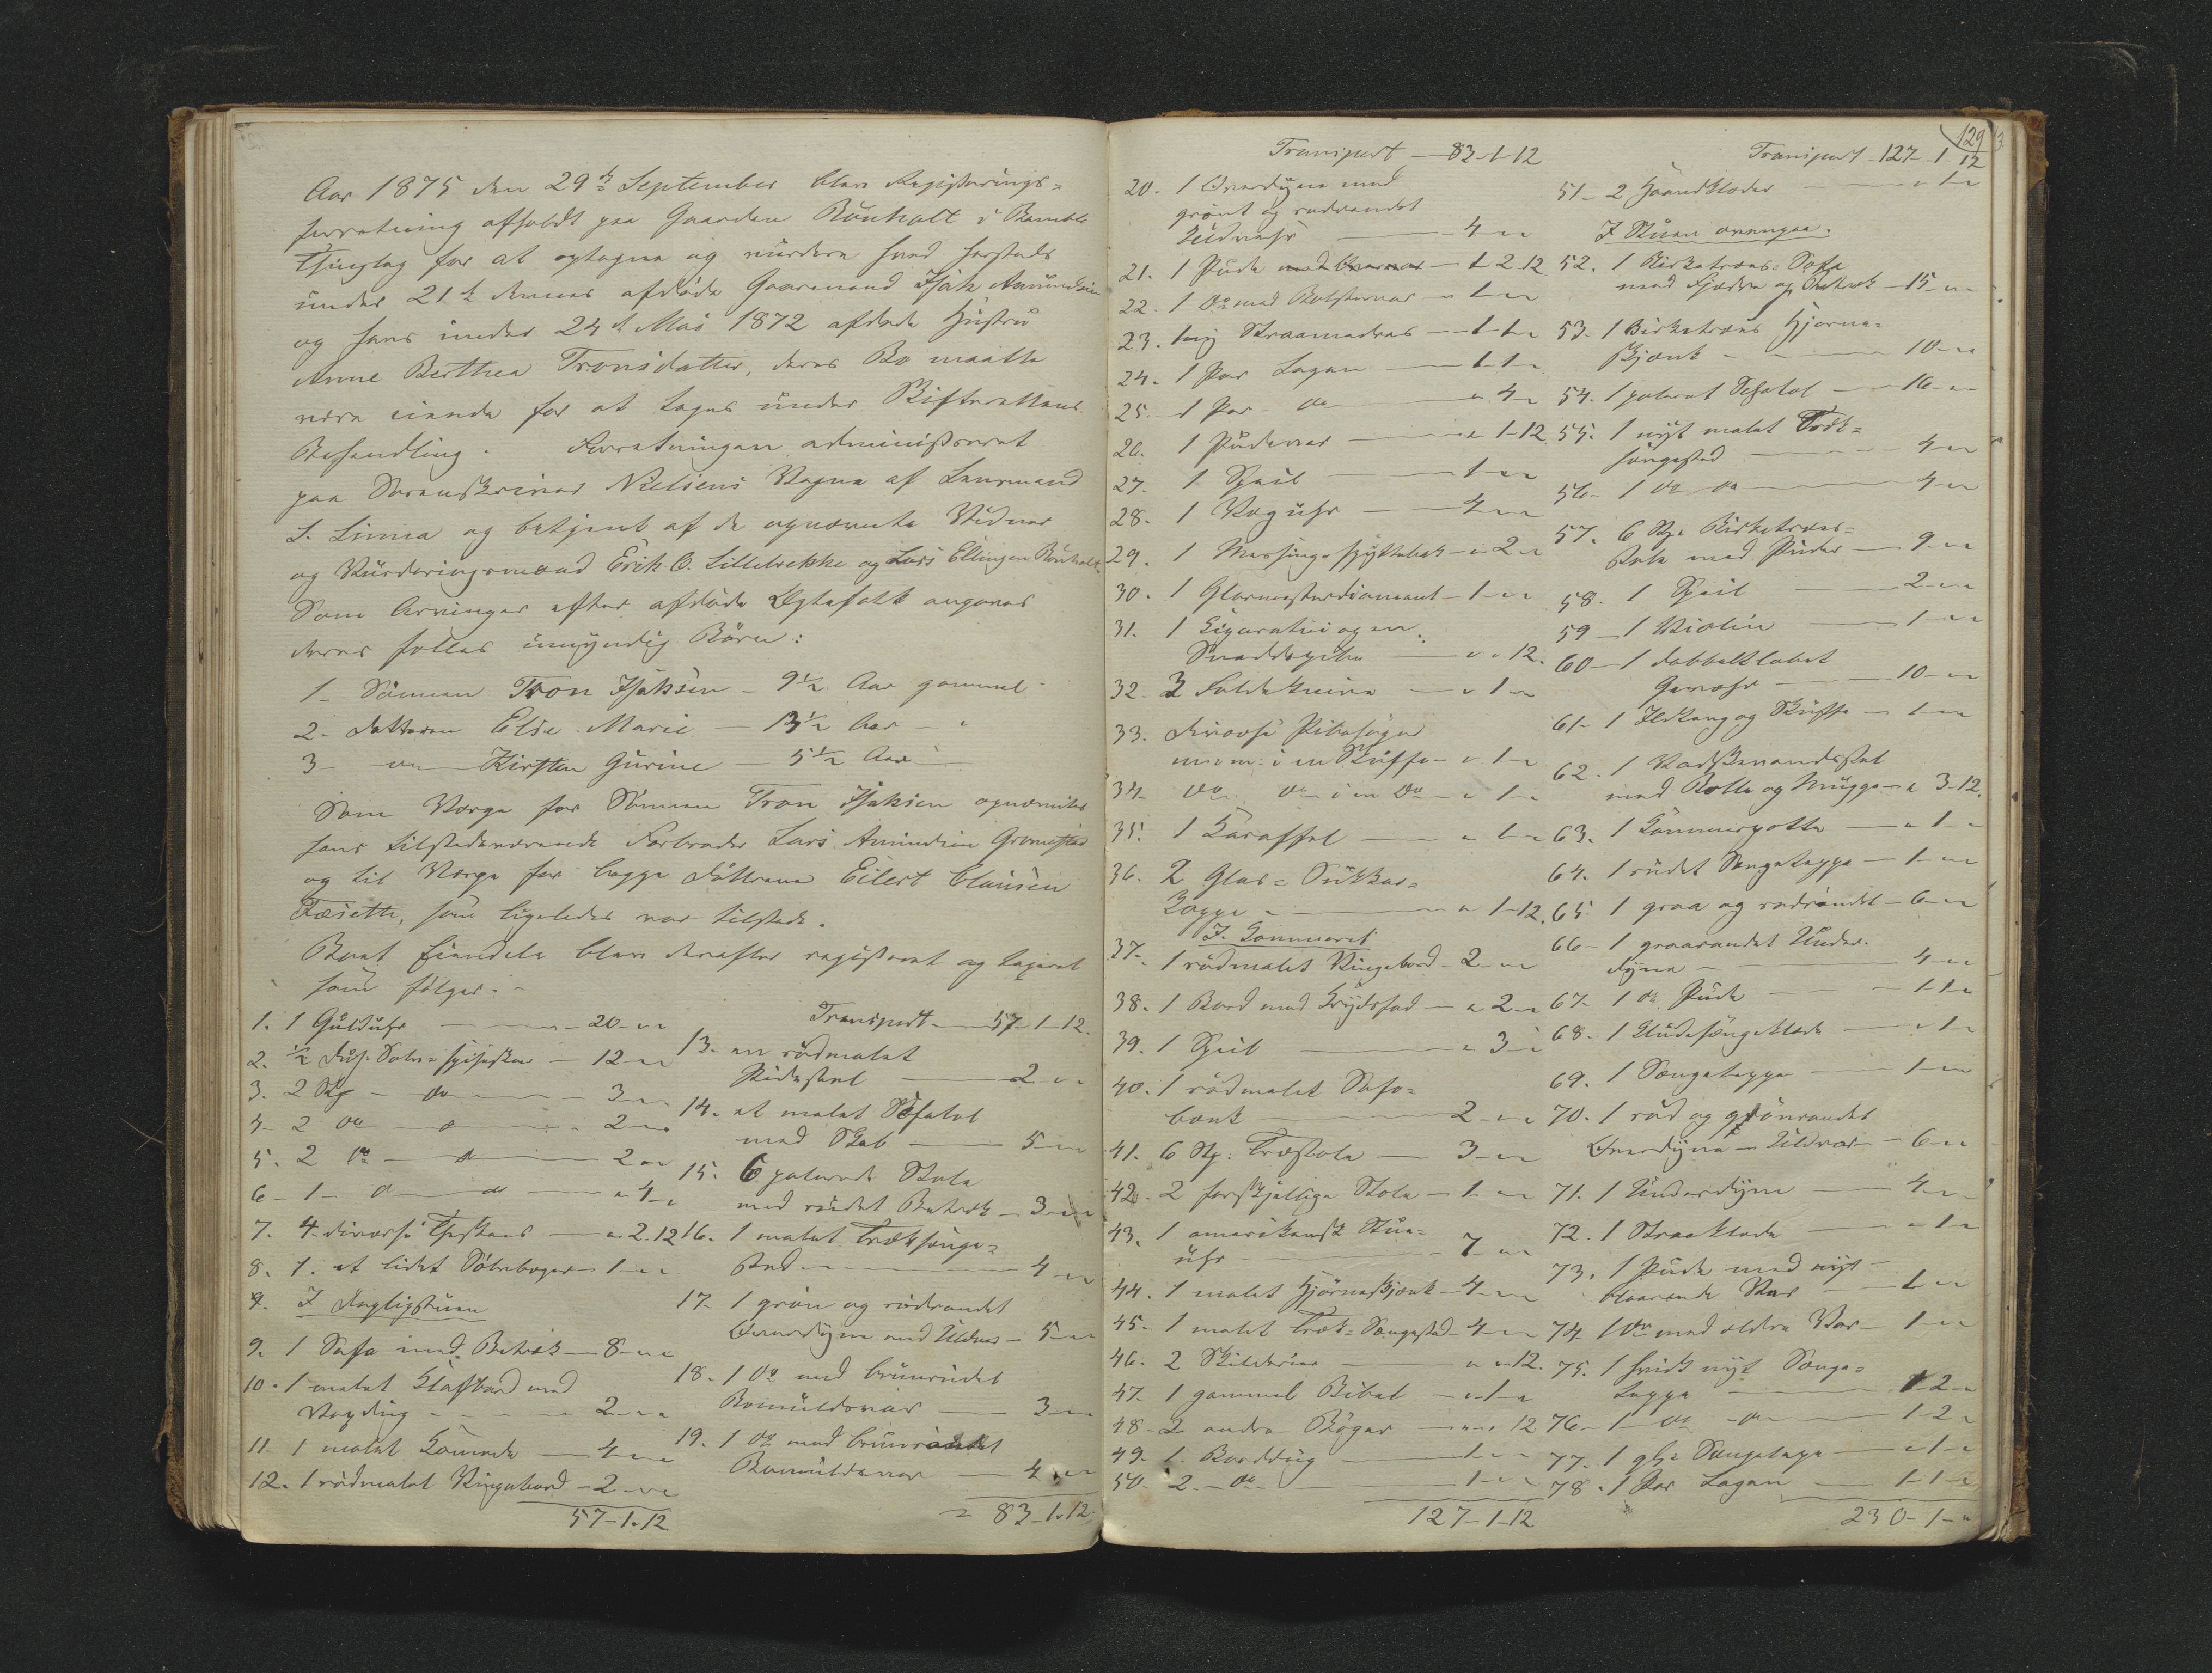 Aar 1875 den 29de September blev Registrerings-
forretning afholdt paa Gaarden Rönholt i Bamble
Thinglag for at optegne og vurdere hvad hersteds
under 21de dennes afdöde Gaarmand Isak Amundsen
og hans under 24de Mai 1872 afdöde Hustru
Anne Berthea Tronsdatter, deres Bo maatte
være eiende for at tages under Skifterettens
Behandling. Forretningen administreret
paa Sorenskriver Nielsens Vegne af Lensmand
S. Linna og betjent af de opnævnte Vidner
og Vurderingsmænd Erik O. Lillebrekke og Lars Ellingsen Rönholt.
Som Arvinger efter afdöde Ægtefolk angaves
deres fælles umyndig Börn:
1 - Sönnen Tron Isaksen - 9½ Aar gammel -
2 - Datteren Else Marie - 13½ Aar - "
3 - do Kirsten Gurine - 5½ Aar -
Som Værge for Sönnen Tron Isaksen opnævntes
hans tilstedeværende Farbroder Lars Amundsen Gromstad
og til Værge for begge Döttrene Eilert Clausen
Fæsette, som ligeledes var tilstede.
Boet Eiendele blev derefter registreret og taxeret
som fölger: -
1. 1 Gulduhr - 20 - " "
2. ½ Dus. Sölv-Spiseskeer - 12 - " "
3. 2 Stk - do - 3 - " "
4 - 2 do - d - 2 - " "
5. 2 do - d - 2 " "
6 - 1 - d - do - " 4 - "
7. 4 diverse Theskeer - " 2. 12
8. 1. et lidet Sölvbæger - 1 - " "
9. I Dagligstuen
9. 1 Sofa med Betræk - 8 - " "
10. 1 malet Klafbord med
Voxdug - 2 - " "
11 - 1 malet Komode - 4 - " "
12. 1 rödmalet Vingebord - 2 - " "
57 - 1. 12
Transport - 57 - 1 - 12.
13. en rödmalet
Pidestal - 2 - " "
14. et malet Chatol
med Skab - 5 - " "
15. 6 polerede Stole
med rudet Betræk - 3 - " "
16. 1 malet Træksenge-
sted - 4 " "
17 - 1 grön og rödrandet
Overdyne med Uldvar - 5 - " "
18. 1 do med brunrudet
Bomuldsvar - 3 - " "
19. 1 do med brunrandet
Bomuldsvar - 4 " "
= 83 - 1. 12.
129
Transport - 83 - 1 - 12
20. 1 Overdyne med
grönt og rödrandet
Uldvahr - 4 - " "
21. 1 Pude - 1 2 12
22. 1 do med Bolstervar - " 1 - "
23. 1 ny Straamadras - 1 - 1 - "
24. 1 Par Lagen - 1 - 1 - "
25. 1 Par - do - " 4 - "
26. 1 Pudevar - " 1 - 12
27. 1 Speil - 1 - " "
28. 1 Væguhr - 4 - " "
29. 1 Messing-Spyttebak - " 2 - "
30. 1 Glarmesterdiamant - 1 - " "
31. 1 Cigaretui og en
Snaddepibe - " " 12.
32. 3 Foldeknive - " 1 - "
33. Diverse Pibesager
m. m. i en Skuffe - " 1 - "
34 - do do i en do - " 1 - "
35. 1 Karaffel - " 1 - "
36. 2 Glas-Sukker-
Kopper - " 1 - 12.
I. Kammeret
37 - 1 rödmalet Vingebord - 2 - " "
38. 1 Bord med Krydsfod - " 2 - "
39. 1 Speil - " 3 - "
40. 1 rödmalet Sofa-
bænk - 2 - " "
41. 6 Stk. Træstole - 3 - " "
42. 2 forskjellige Stole - 1 - " "
43. 1 amerikansk Stue-
uhr - 7 - " "
44. 1 malet Hjörneskjenk - 4 - " "
45. 1 malet Træk-Sengested - 4 - " "
46. 2 Skilderier - " " 12.
47. 1 gammel Bibel - " 1 - "
48 - 2 andre Böger - " " 12
49. 1. Borddug - 1 - " "
50 2 - do - 1 - " "
127 - 1 - 12
Transport 127 - 1 12
51 - 2 Haandklæder - " 1 - "
I Stuen ovenpaa.
52. 1 Birketræes-Sofa
med Fjædre og Betræk - 15 - " "
53. 1 Birketræes Hjörne-
skjænk - 10 - " "
54. 1 poleret Chatol - 16 - " "
55. 1 nyt malet Træk-
sengested - 4 - " "
56 - 1 do do - 4 - " "
57. 6 Stk. Birketræes-
Stole med Puder - 9 - " "
58. 1 Speil - 2 - " "
59 - 1 Violin - 1 - " "
60 - 1 dobbeltlöbet
Gevæhr - 10 - " "
61 - 1 Ildtang og Skuffe - 1 - " "
62. 1 Vadskevandsstel
med Bolle og Mugge - " 3 - 12.
63. 1 Kammerpotte - " 1 - "
64. 1 rudet Sengeteppe - 1 - " "
65. 1 graa og rödrandet - 6 - " "
66 - 1 graarandet Under-
dyne - 4 - " "
67. 1 do Pude - 1 - 1 - "
68. 1 Kludesengeklæde - " 1 - "
69. 1 Sengeteppe - 1 - " "
70. 1 röd og grönrandet
Overdyne - Uldvar - 6 - " "
71. 1 Underdyne - 4 - " "
72. 1 Straaklæde - " 1 - "
73. 1 Pude med nyt
blaarandet Var - 1 - " "
74 1 do med ældre Var - 1 - " "
75. 1 hvidt nyt Senge-
teppe - 1 - 2 - "
76 - 1 - do - do - 1 - 2 -
77. 1 gl. Sengetæpe - " 1 - "
78. 1 Par Lagen - 1 - 1 - "
230 - 1 - "